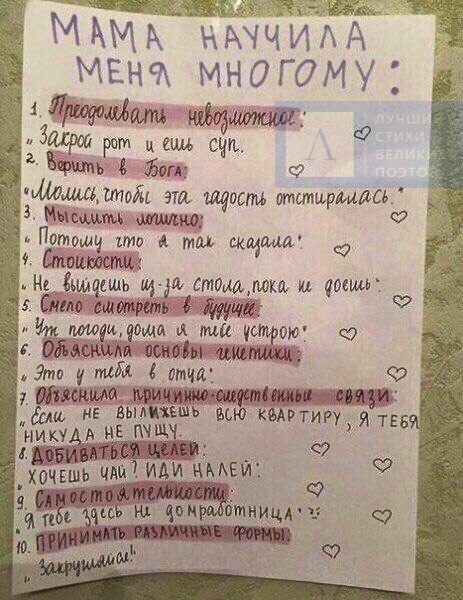 МАМА НАУЧИЛА
МЕНЯ МНОГОМУ:
ЛУЧШИ
СТИХИ
ВЕЛИКИХ
ПОЭТО
Л
1. Преодолевать невозможное:
„ Закрой рот и ешь суп.
2. Верить в Бога:
„Молись, чтобы эта гадость отстиралась."
3. Мыслить логично:
„ Потому что я так сказала"
4. Стойкости:
„ Не выйдешь из-за стола, пока не доешь"
5. Смело смотреть в будущее:
„ Уж погоди, дома я тебе устрою"
6. Объяснила основы генетики:
„ Это у тебя в отца"
7. Объяснила причинно-следственные связи:
„ Если НЕ ВЫЛИЖЕШЬ ВСЮ КВАРТИРУ, Я ТЕБЯ
НИКУДА НЕ ПУЩУ.
8. ДОБИВАТЬСЯ ЦЕЛЕЙ:
„ ХОЧЕШЬ ЧАЙ? ИДИ НАЛЕЙ"
9. Самостоятельности:
„Я тебе здесь не домработница"
10. ПРИНИМАТЬ РАЗЛИЧНЫЕ ФОРМЫ:
„ Закругляйся!"